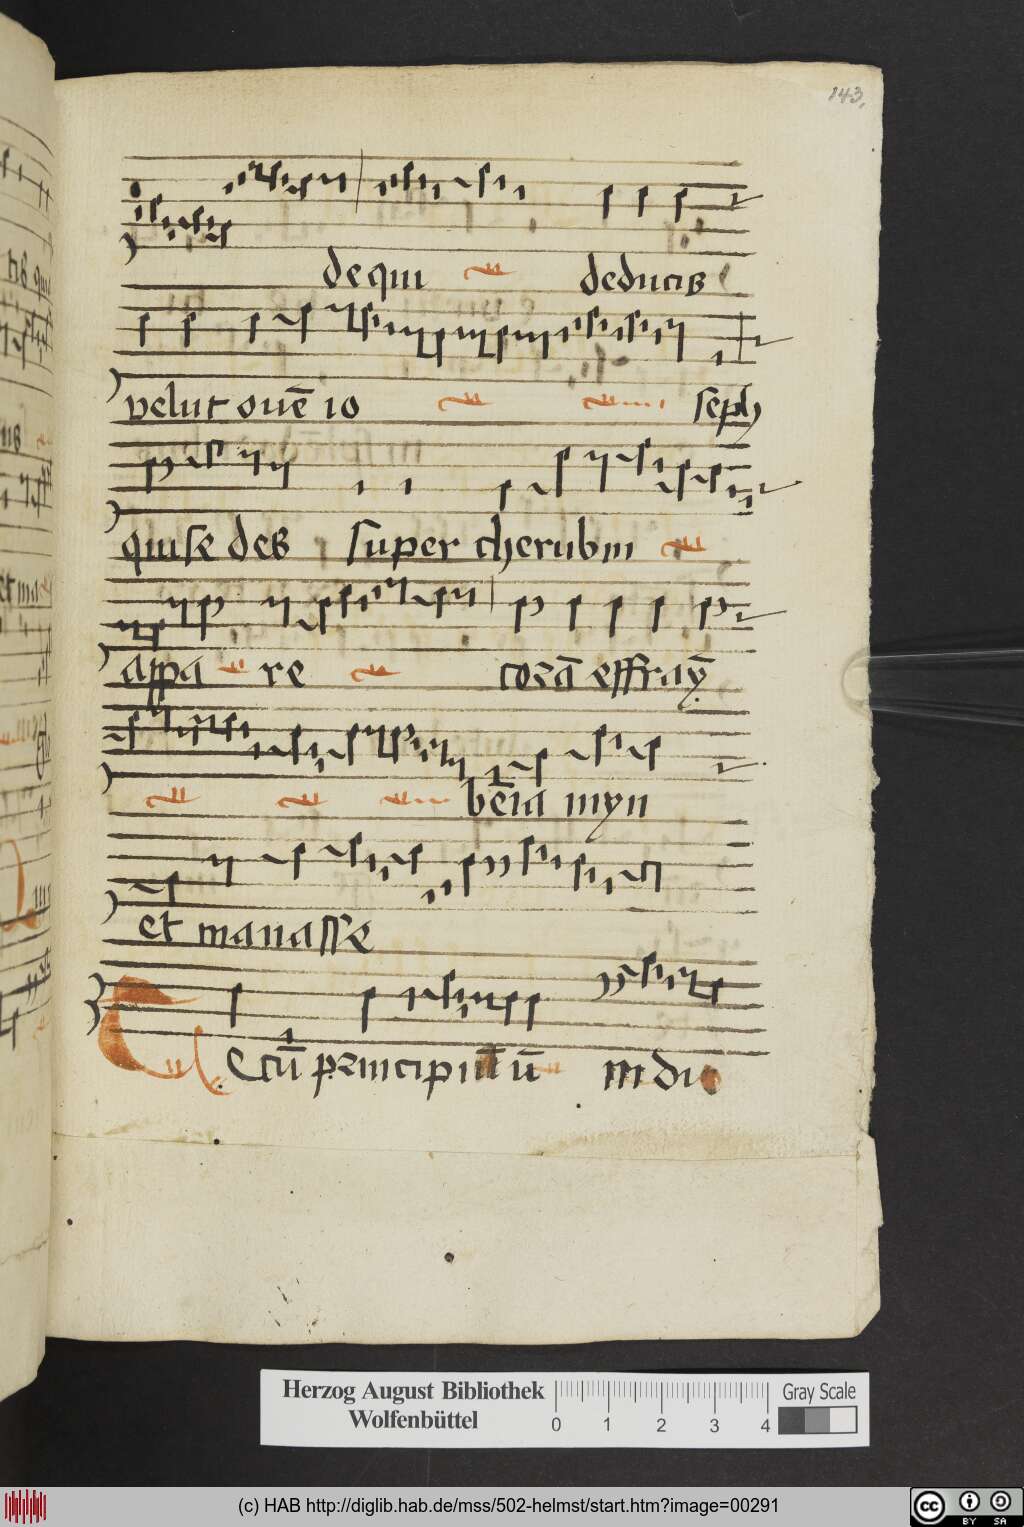 143,
de qui deducis
velut ovē io seph
qui sedes super cherubin
appa re corā effraȳ
bēia myn
et manasse
Tecū principiū in di
Herzog August Bibliothek
Wolfenbüttel
0 1 2 3 4
Gray Scale
(c) HAB http://diglib.hab.de/mss/502-helmst/start.htm?image=00291
cc BY SA